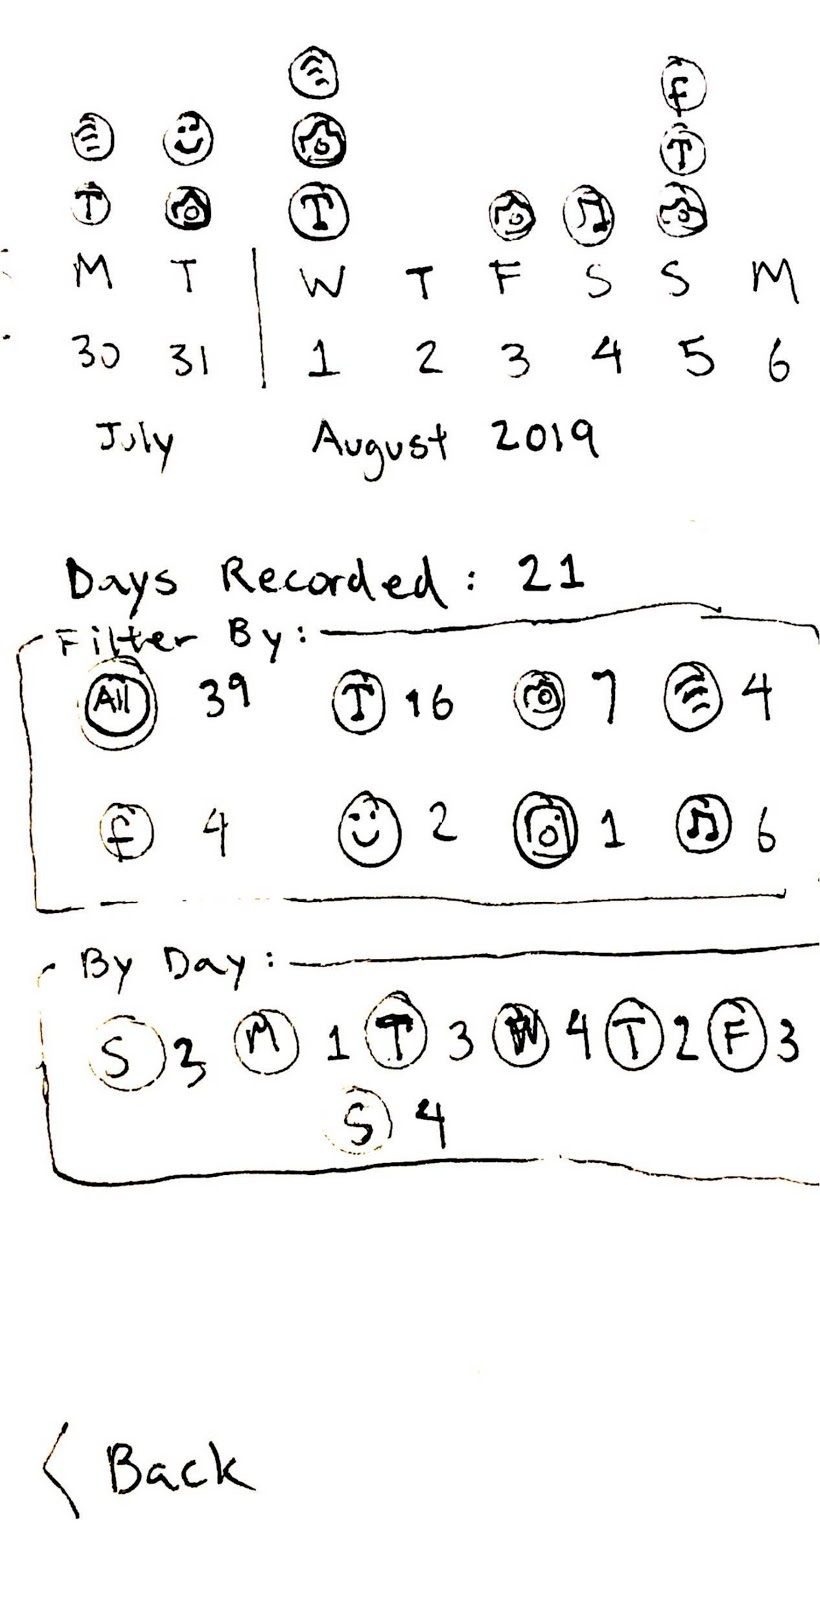 T T
T
f
M T W T F S S M
30 31 1 2 3 4 5 6
July August 2019
Days Recorded: 21
Filter By:
All 39 T 16 7 4
f 4 2 1 6
By Day:
S 3 M 1 T 3 W 4 T 2 F 3
S 4
< Back